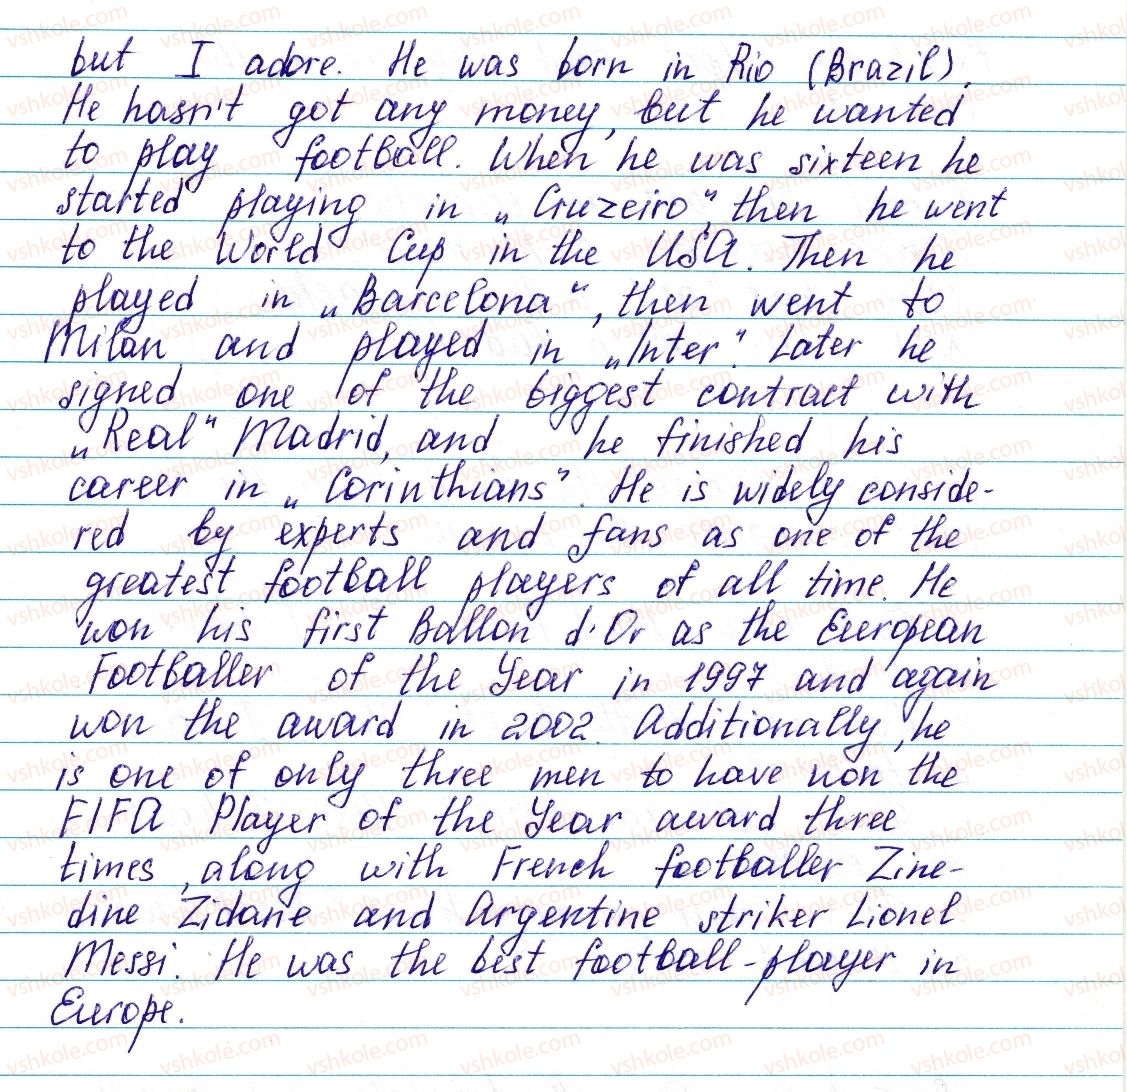 but I adore. He was born in Rio (Brazil).
He hasn't got any money, but he wanted
to play football. When he was sixteen he
started playing in „Cruzeiro", then he went
to the World Cup in the USA. Then he
played in „Barcelona", then went to
Milan and played in „Inter". Later he
signed one of the biggest contract with
„Real" Madrid, and he finished his
career in „Corinthians". He is widely conside-
red by experts and fans as one of the
greatest football players of all time. He
won his first Ballon d'Or as the European
Footballer of the Year in 1997 and again
won the award in 2002. Additionally, he
is one of only three men to have won the
FIFA Player of the Year award three
times, along with French footballer Zine-
dine Zidane and Argentine striker Lionel
Messi. He was the best football-player in
Europe.
vshkole.com